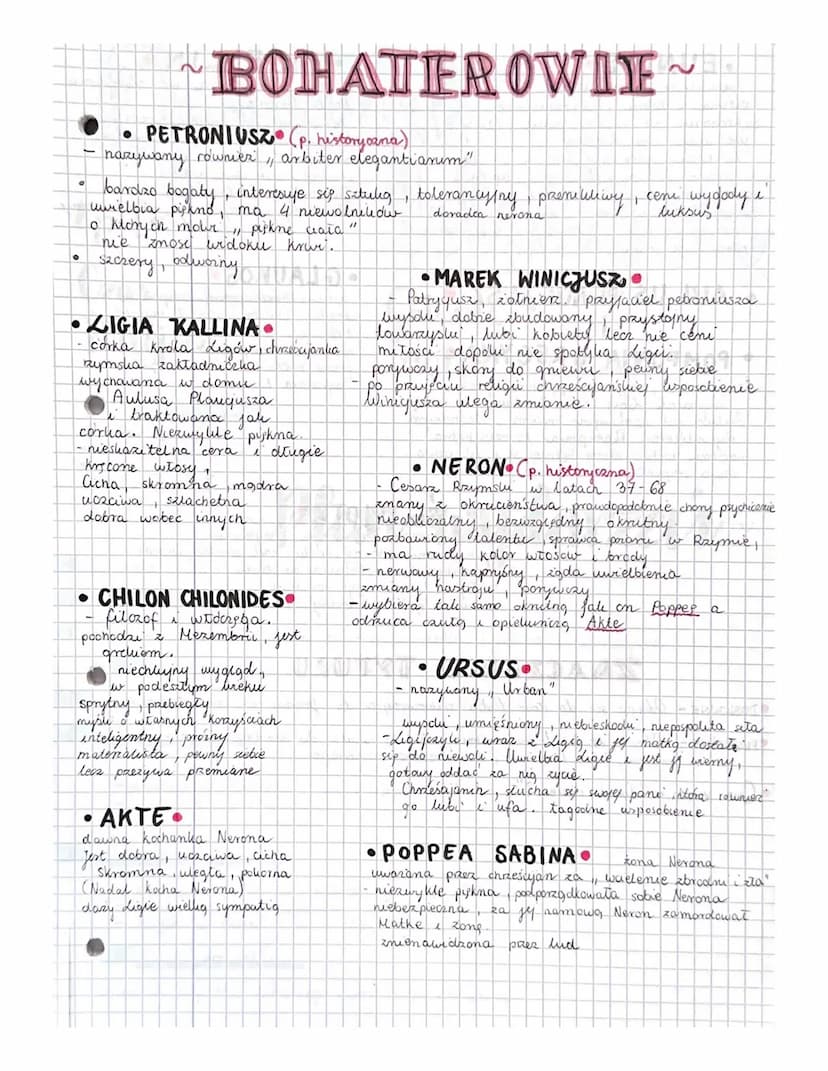 ~ BOHATEROWIE ~
• PETRONIUSZ• (p. historyczna)
- nazywany również „ arbiter elegantiarum"
• bardzo bogaty , interesuje się sztuką , tolerancyjny , przenikliwy , ceni wygody i
uwielbia piękno , ma 4 niewolników doradca nerona luksus
o których mówi „ piękne ciała "
nie znosi widoku krwi.
• szczery , odważny
• LIGIA KALLINA•
- córka króla Ligów, chrześcijanka
rzymska zakładniczka
wychowana w domu
Aulusa Plaucjusza
i traktowana jak
córka. Niezwykle piękna.
- nieskazitelna cera i długie
kręcone włosy ,
Cicha, skromna , mądra
uczciwa , szlachetna
dobra wobec innych
• CHILON CHILONIDES•
- filozof i włóczęga.
pochodzi z Mezembrii, jest
grekiem.
niechlujny wygląd ,
w podeszłym wieku
sprytny , przebiegły
myśli o własnych korzyściach
inteligentny , próżny
materialista , pewny siebie
lecz przeżywa przemianę
• AKTE•
dawna kochanka Nerona
Jest dobra , uczciwa , cicha
Skromna , uległa , pokorna
(Nadal kocha Nerona)
darzy Ligię wielką sympatią
• MAREK WINICJUSZ•
- Patrycjusz, żołnierz. przyjaciel petroniusza
wysoki , dobrze zbudowany , przystojny
towarzyski , lubi kobiety lecz nie ceni
miłości dopóki nie spotyka Ligii.
porywczy , skory do gniewu , pewny siebie
- po przyjęciu religii chrześcijańskiej usposobienie
Winicjusza ulega zmianie.
• NERON• (p. historyczna)
- Cesarz Rzymski w latach 37-68
znany z okrucieństwa , prawdopodobnie chory psychicznie
nieobliczalny , bezwzględny , okrutny.
pozbawiony talentu , sprawca pożaru w Rzymie,
- ma rudy kolor włosów i brody
- nerwowy , kapryśny , żąda uwielbienia
zmiany nastroju , porywczy
- wybiera tak samo okrutną jak on Poppeę a
odrzuca czułą i opiekuńczą Akte
• URSUS•
- nazywany „ Urban"
wysoki , umięśniony , niebieskooki , niepospolita siła
- Ligijczyk , wraz z Ligią i jej matką dostałę
się do niewoli. Uwielbia Ligię i jest jej wierny,
gotowy oddać za nią życie.
Chrześcijanin , słucha się swojej pani , która również
go lubi i ufa. łagodne usposobienie
• POPPEA SABINA• żona Nerona
uważana przez chrześcijan za „ wcielenie zbrodni i zła"
- niezwykle piękna , podporządkowała sobie Nerona
niebezpieczna , za jej namową Neron zamordował
Matkę i żonę.
znienawidzona przez lud